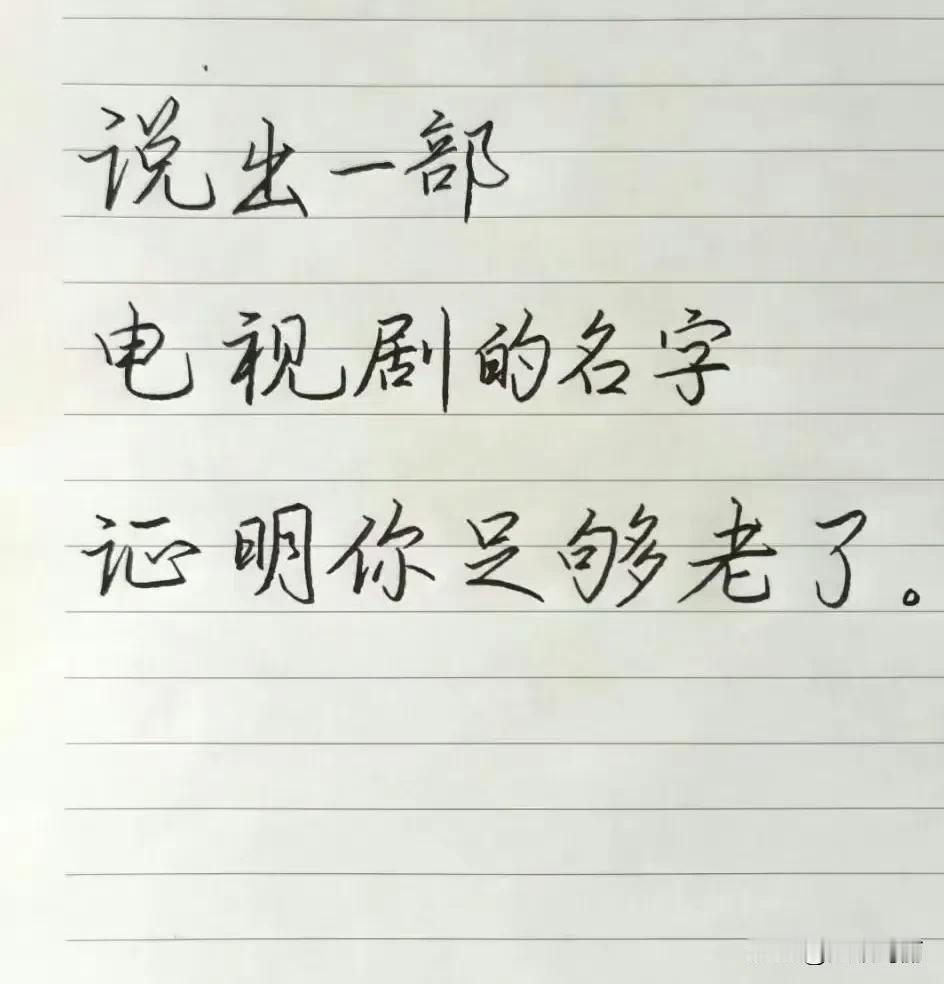 说出一部
电视剧的名字
证明你足够老了。